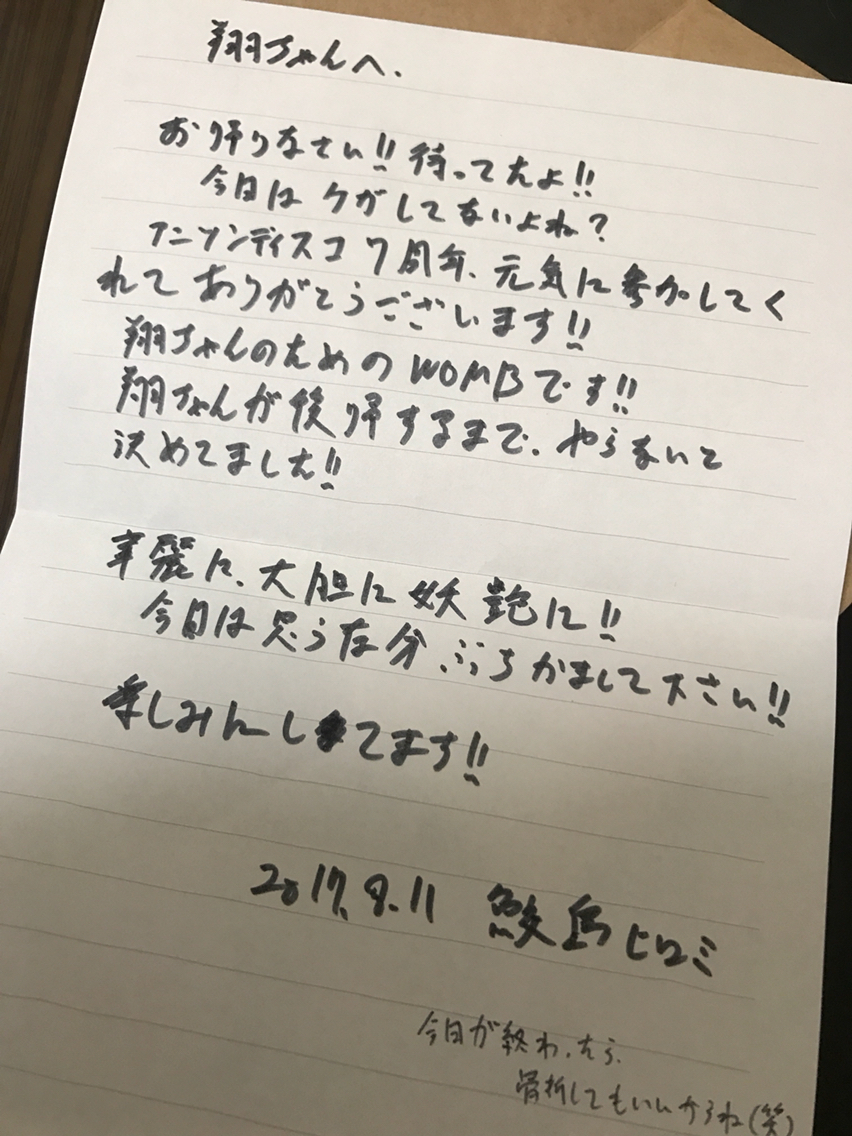 翔ちゃんへ.
お帰りなさい!! 待ってたよ!!
今日は ケガしてないよね?
アニソンディスコ7周年、元気に参加してく
れて ありがとうございます!!
翔ちゃんのための WOMBです!!
翔ちゃんが復帰するまで、やらないと
決めてました!!
華麗に、大胆に 妖艶に!!
今日は思う存分、ぶちかまして下さい!!
楽しみにしてます!!
2017.9.11 鮫島ヒロミ
今日が終わったら、
骨折してもいいからね(笑)